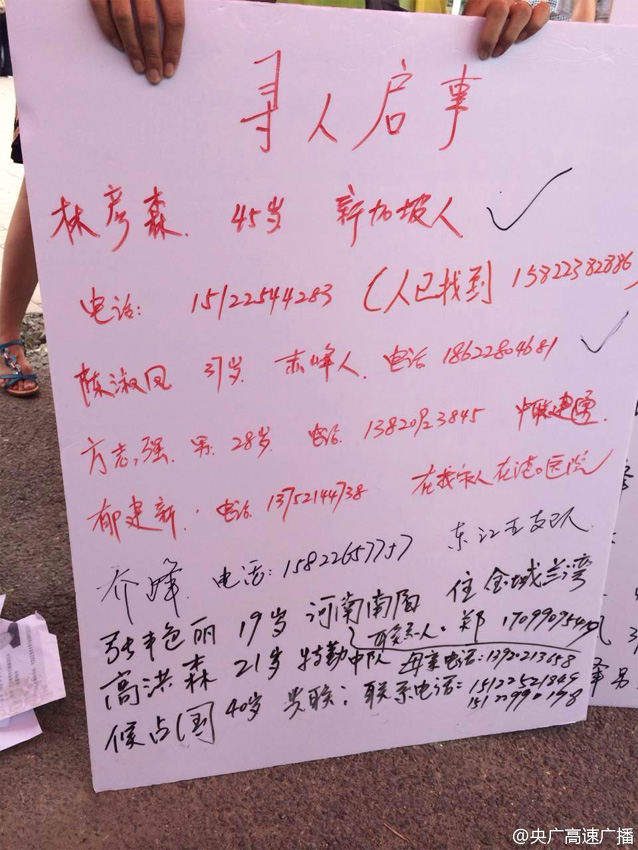 寻人启事
林彦森. 45岁 新加坡人
电话: 15122544283 (人已找到 15822382886
陈淑凤 37岁. 赤峰人. 电话 18622804681
方志强. 男. 28岁. 电话. 13820923845
郁建新. 电话. 13752144738 在找家人在港口医院
乔峰. 电话: 15822657757 东江五支队
张艳丽 19岁 河南南阳 住金域兰湾
联系人. 郑
高洪森 21岁 特勤中队 母亲电话:
候占国 40岁 失联: 联系电话: 15122521849
15122990178
@央广高速广播